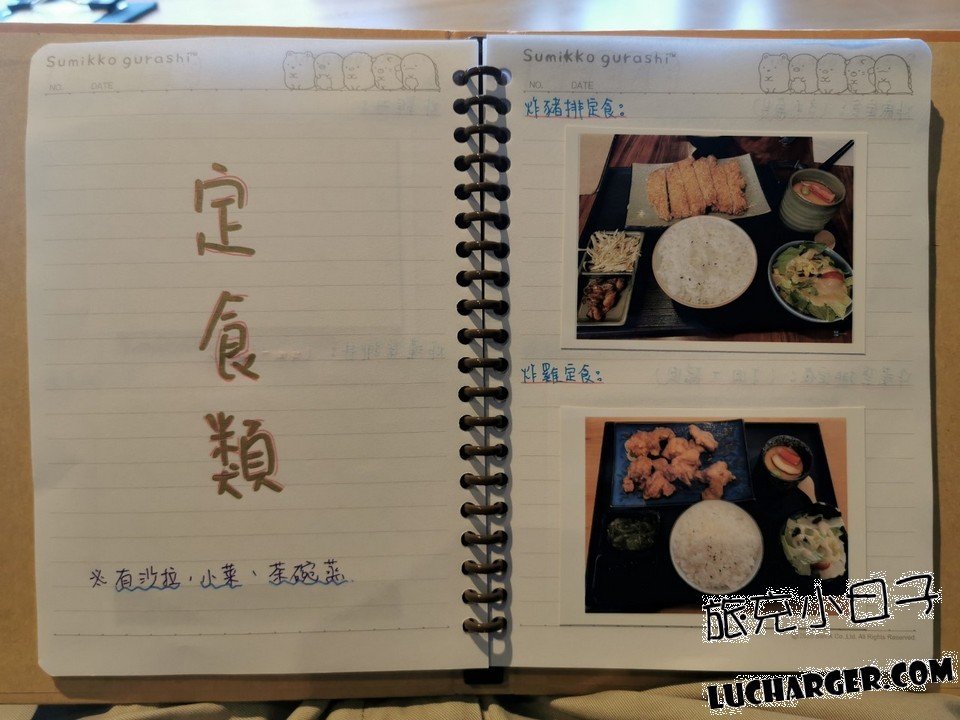 Sumikko gurashi™
NO. DATE
定食類
※有沙拉、小菜、茶碗蒸
Sumikko gurashi™
NO. DATE
炸豬排定食:
炸雞定食:
Co.,Ltd. All Rights Reserved.
旅充小日子
LUCHARGER.COM